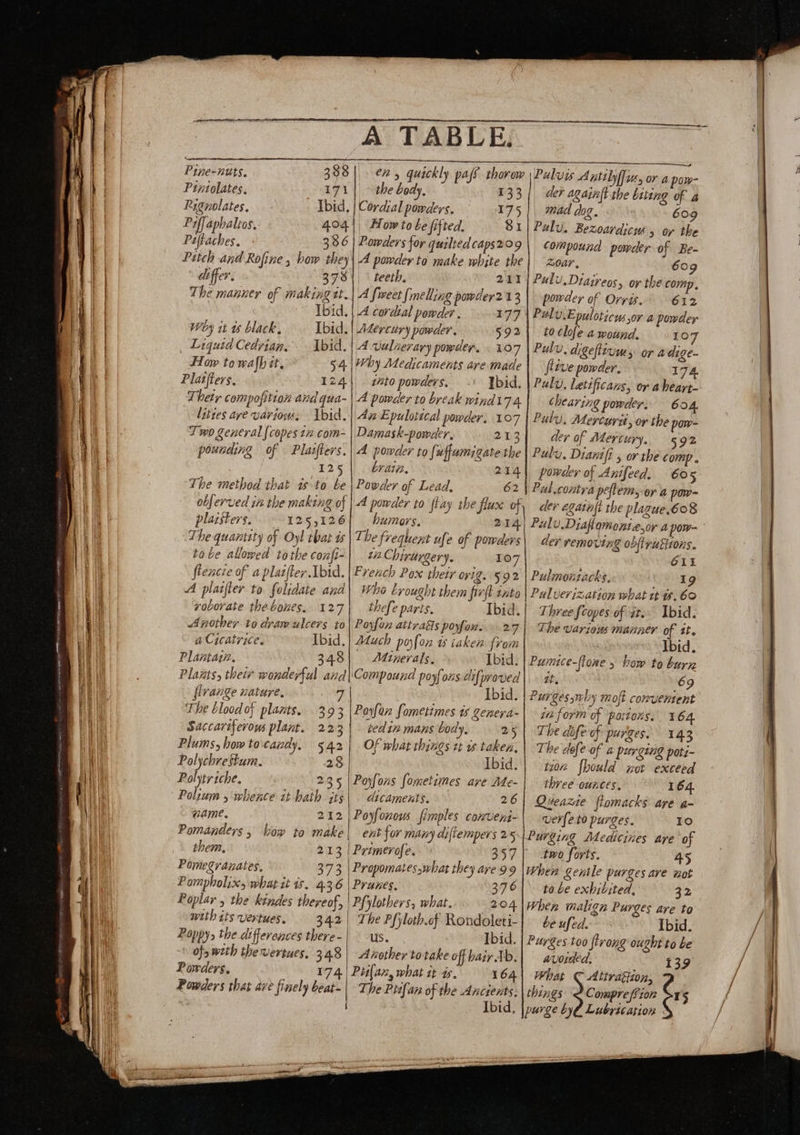 A TABLE.
Pine-nuts. 388
Piniolates. 171
Rignolates. Ibid.
Pissaphaltos. 404
Pistaches. 386
Pitch and Rosine, how they
differ. 378
The manner of making it.
Ibid.
Why it is black. Ibid.
Liquid Cedrian. Ibid.
How to wash it. 54
Plaisters. 124
Their composition and qua-
lities are various. Ibid.
Two general scopes in com-
pounding of Plaisters.
125
The method that is to be
observed in the making of
plaisters. 125,126
The quantity of Oyl that is
to be allowed to the consi-
stencie of a plaister. Ibid.
A plaister to solidate and
roborate the bones. 127
Another to draw ulcers to
a Cicatrice. Ibid.
Plantain. 348
Plants, their wonderful and
strange nature. 7
The blood of plants. 393
Saccariferous plant. 223
Plums, how to candy. 542
Polychrestum. 28
Polytriche. 235
Polium, whence it hath its
name. 212
Pomanders, how to make
them. 213
Pomegranates. 373
Pompholix, what it is. 436
Poplar, the kindes thereof,
with its vertues. 342
Poppy, the differences there-
of, with the vertues. 348
Powders. 174
Powders that are finely beat-
en, quickly pass thorow
the body. 133
Cordial powders. 175
How to be sifted. 81
Powders for quilted caps 209
A powder to make white the
teeth. 211
A sweet smelling powder 213
A cordial powder. 177
Mercury powder. 592
A vulnerary powder. 107
Why Medicaments are made
into powders. Ibid.
A powder to break wind 174
An Epulotical powder. 107
Damask-powder. 213
A powder to suffumigate the
brain. 214
Powder of Lead. 62
A powder to stay the flux of
humors. 214
The frequent use of powders
in Chirurgery. 107
French Pox their orig. 592
Who brought them first into
these parts. Ibid.
Poyson attracts poyson. 27
Much poyson is taken from
Minerals. Ibid.
Compound poysons disproved
Ibid.
Poyson sometimes is genera-
ted in mans body. 25
Of what things it is taken.
Ibid.
Poysons sometimes are Me-
dicaments. 26
Poysonous simples conveni-
ent for many distempers 25
Primerose. 357
Propomates, what they are 99
Prunes. 376
Psylothers, what. 204
The Psyloth. of Rondoleti-
us. Ibid.
Another to take off hair. Ib.
Ptisan, what it is. 164
The Ptisan of the Ancients.
Ibid.
Pulvis Antilyssus, or a pow-
der against the biting of a
mad dog. 609
Pulv. Bezoardicus, or the
compound powder of Be-
zoar. 609
Pulv. Diaireos, or the comp.
powder of Orris. 612
Pulv. Epuloticus, or a powder
to close a wound. 107
Pulv. digestivus, or a dige-
stive powder. 174
Pulv. letificans, or a heart-
chearing powder. 604
Pulv. Mercurii, or the pow-
der of Mercury. 592
Pulv. Dianisi, or the comp.
powder of Aniseed. 605
Pul. contra pestem, or a pow-
der against the plague. 608
Pulv. Diassamoniae, or a pow-
der removing obstructions.
611
Pulmontacks. 19
Pulverization what it is. 60
Three scopes of it. Ibid.
The various manner of it.
Ibid.
Pumice-stone, how to burn
it. 69
Purges, why most convenient
in form of potions. 164
The dose of purges. 143
The dose of a purging poti-
tion should not exceed
three ounces. 164
Queazie stomacks are a-
verse to purges. 10
Purging Medicines are of
two sorts. 45
When gentle purges are not
to be exhibited. 32
When malign Purges are to
be used. Ibid.
Purges too strong ought to be
avoided. 139
What things purge by { Attraction, Compression Lubrication } 15